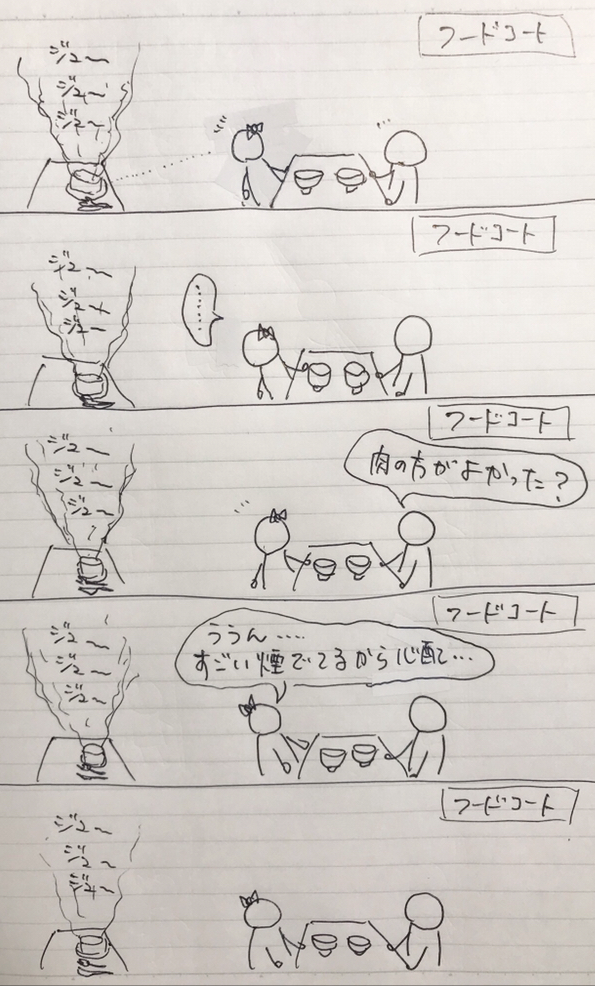 フードコート
ジュ〜
ジュ〜
ジュ〜
フードコート
ジュ〜
ジュ〜
ジュ〜
………
フードコート
肉の方がよかった？
ジュ〜
ジュ〜
ジュ〜
フードコート
ううん‥‥
すごい煙でてるから心配で…
ジュ〜
ジュ〜
ジュ〜
フードコート
ジュ〜
ジュ〜
ジュ〜